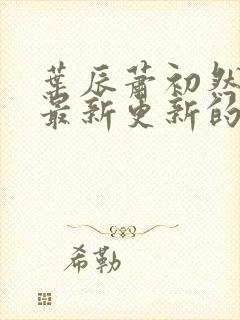 葉辰蕭初然
最新更新的
希勒